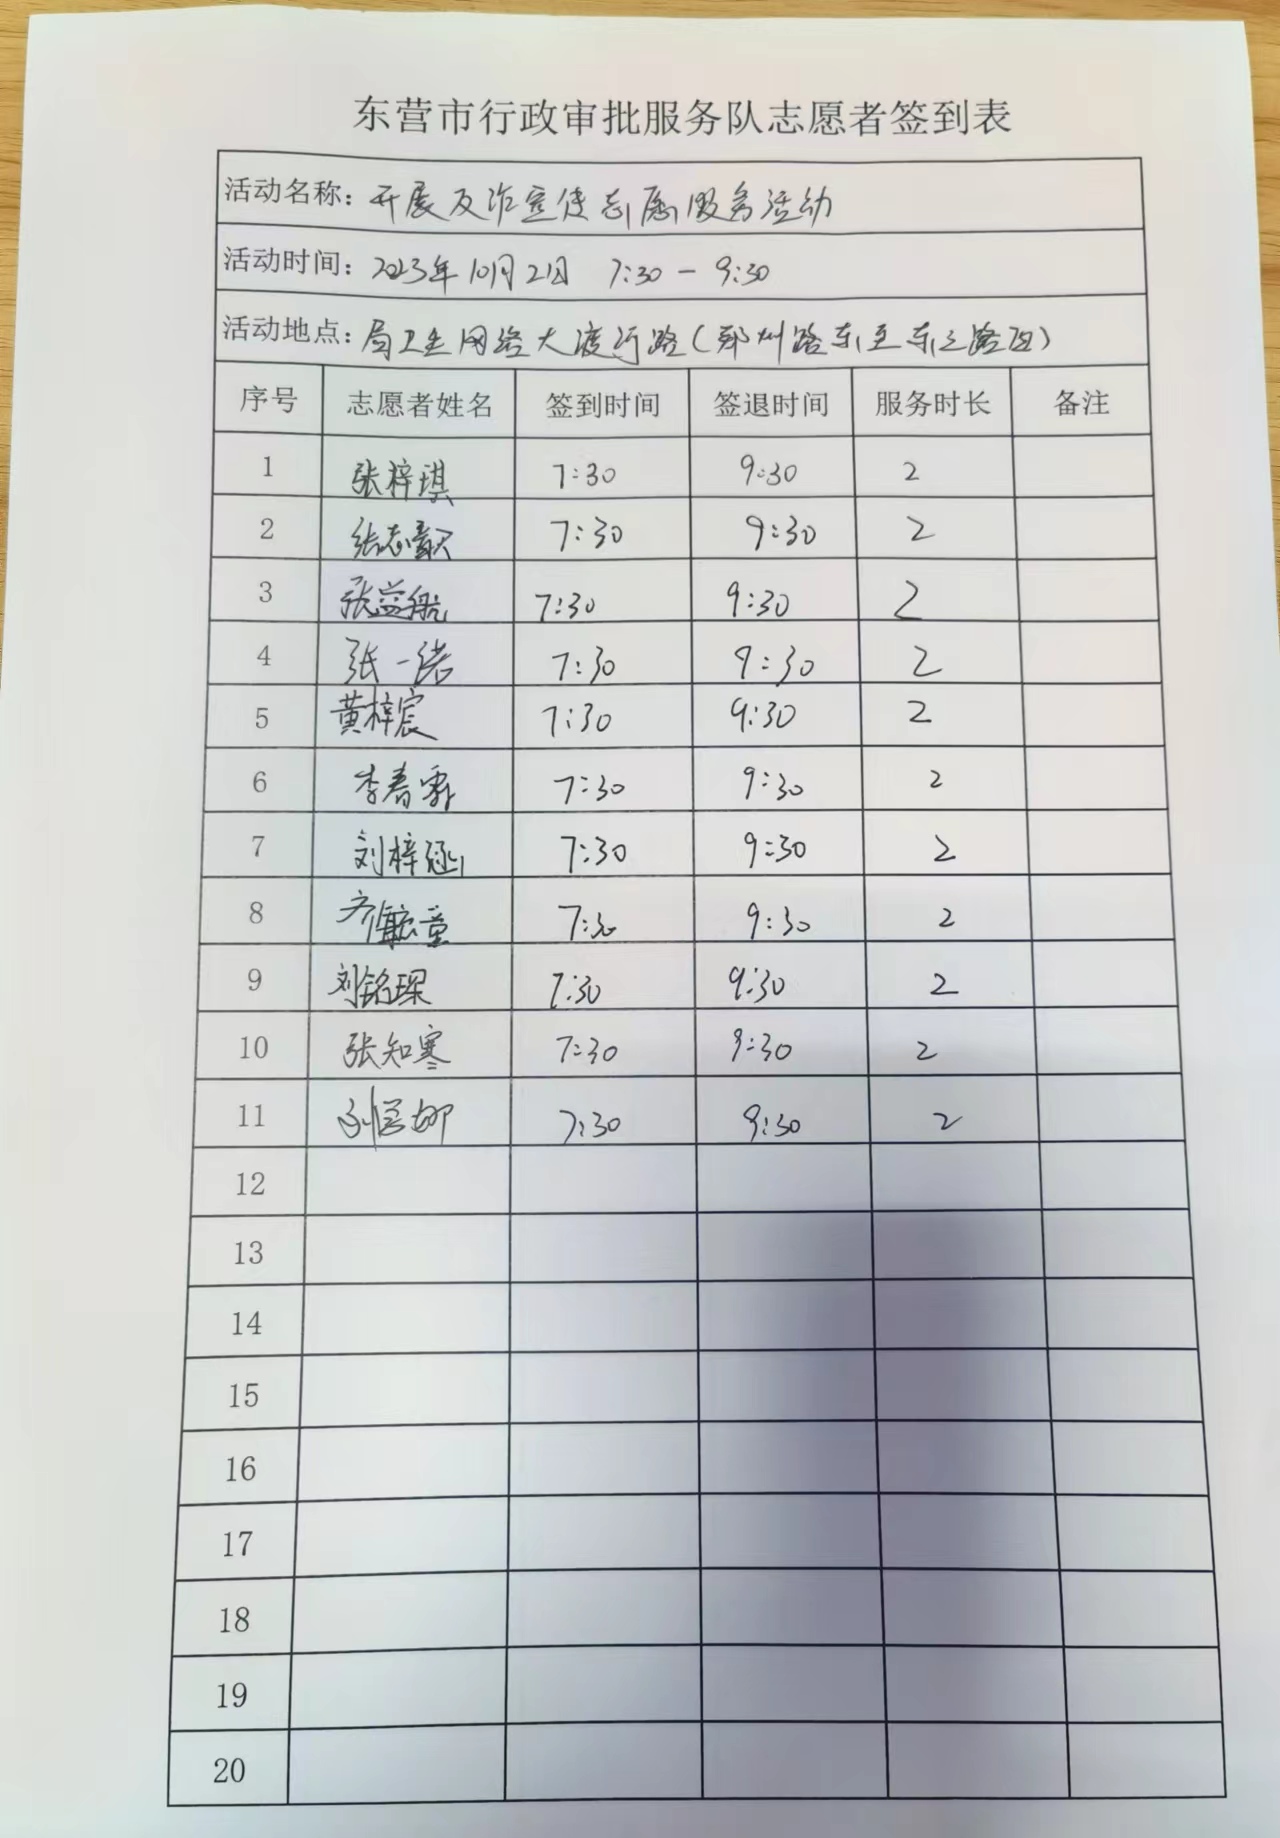 东营市行政审批服务队志愿者签到表
活动名称：开展反诈宣传志愿服务活动
活动时间：2023年10月2日 7:30-9:30
活动地点：局卫生网络大渡河路（郑州路东至东之路西）
序号 志愿者姓名 签到时间 签退时间 服务时长 备注
1 张梓琪 7:30 9:30 2
2 张志毅 7:30 9:30 2
3 张益船 7:30 9:30 2
4 张一诺 7:30 9:30 2
5 黄梓宸 7:30 9:30 2
6 李春霖 7:30 9:30 2
7 刘梓涵 7:30 9:30 2
8 7:30 9:30 2
9 刘铭琛 7:30 9:30 2
10 张知寒 7:30 9:30 2
11 7:30 9:30 2
12
13
14
15
16
17
18
19
20